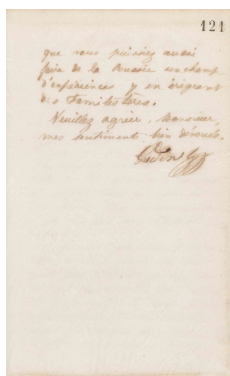 121
que vous puissiez aussi
faire de la Russie un champ
d'expériences y en érigeant
des familistères.
Veuillez agréer, Monsieur,
mes sentiments bien dévoués.
Godin